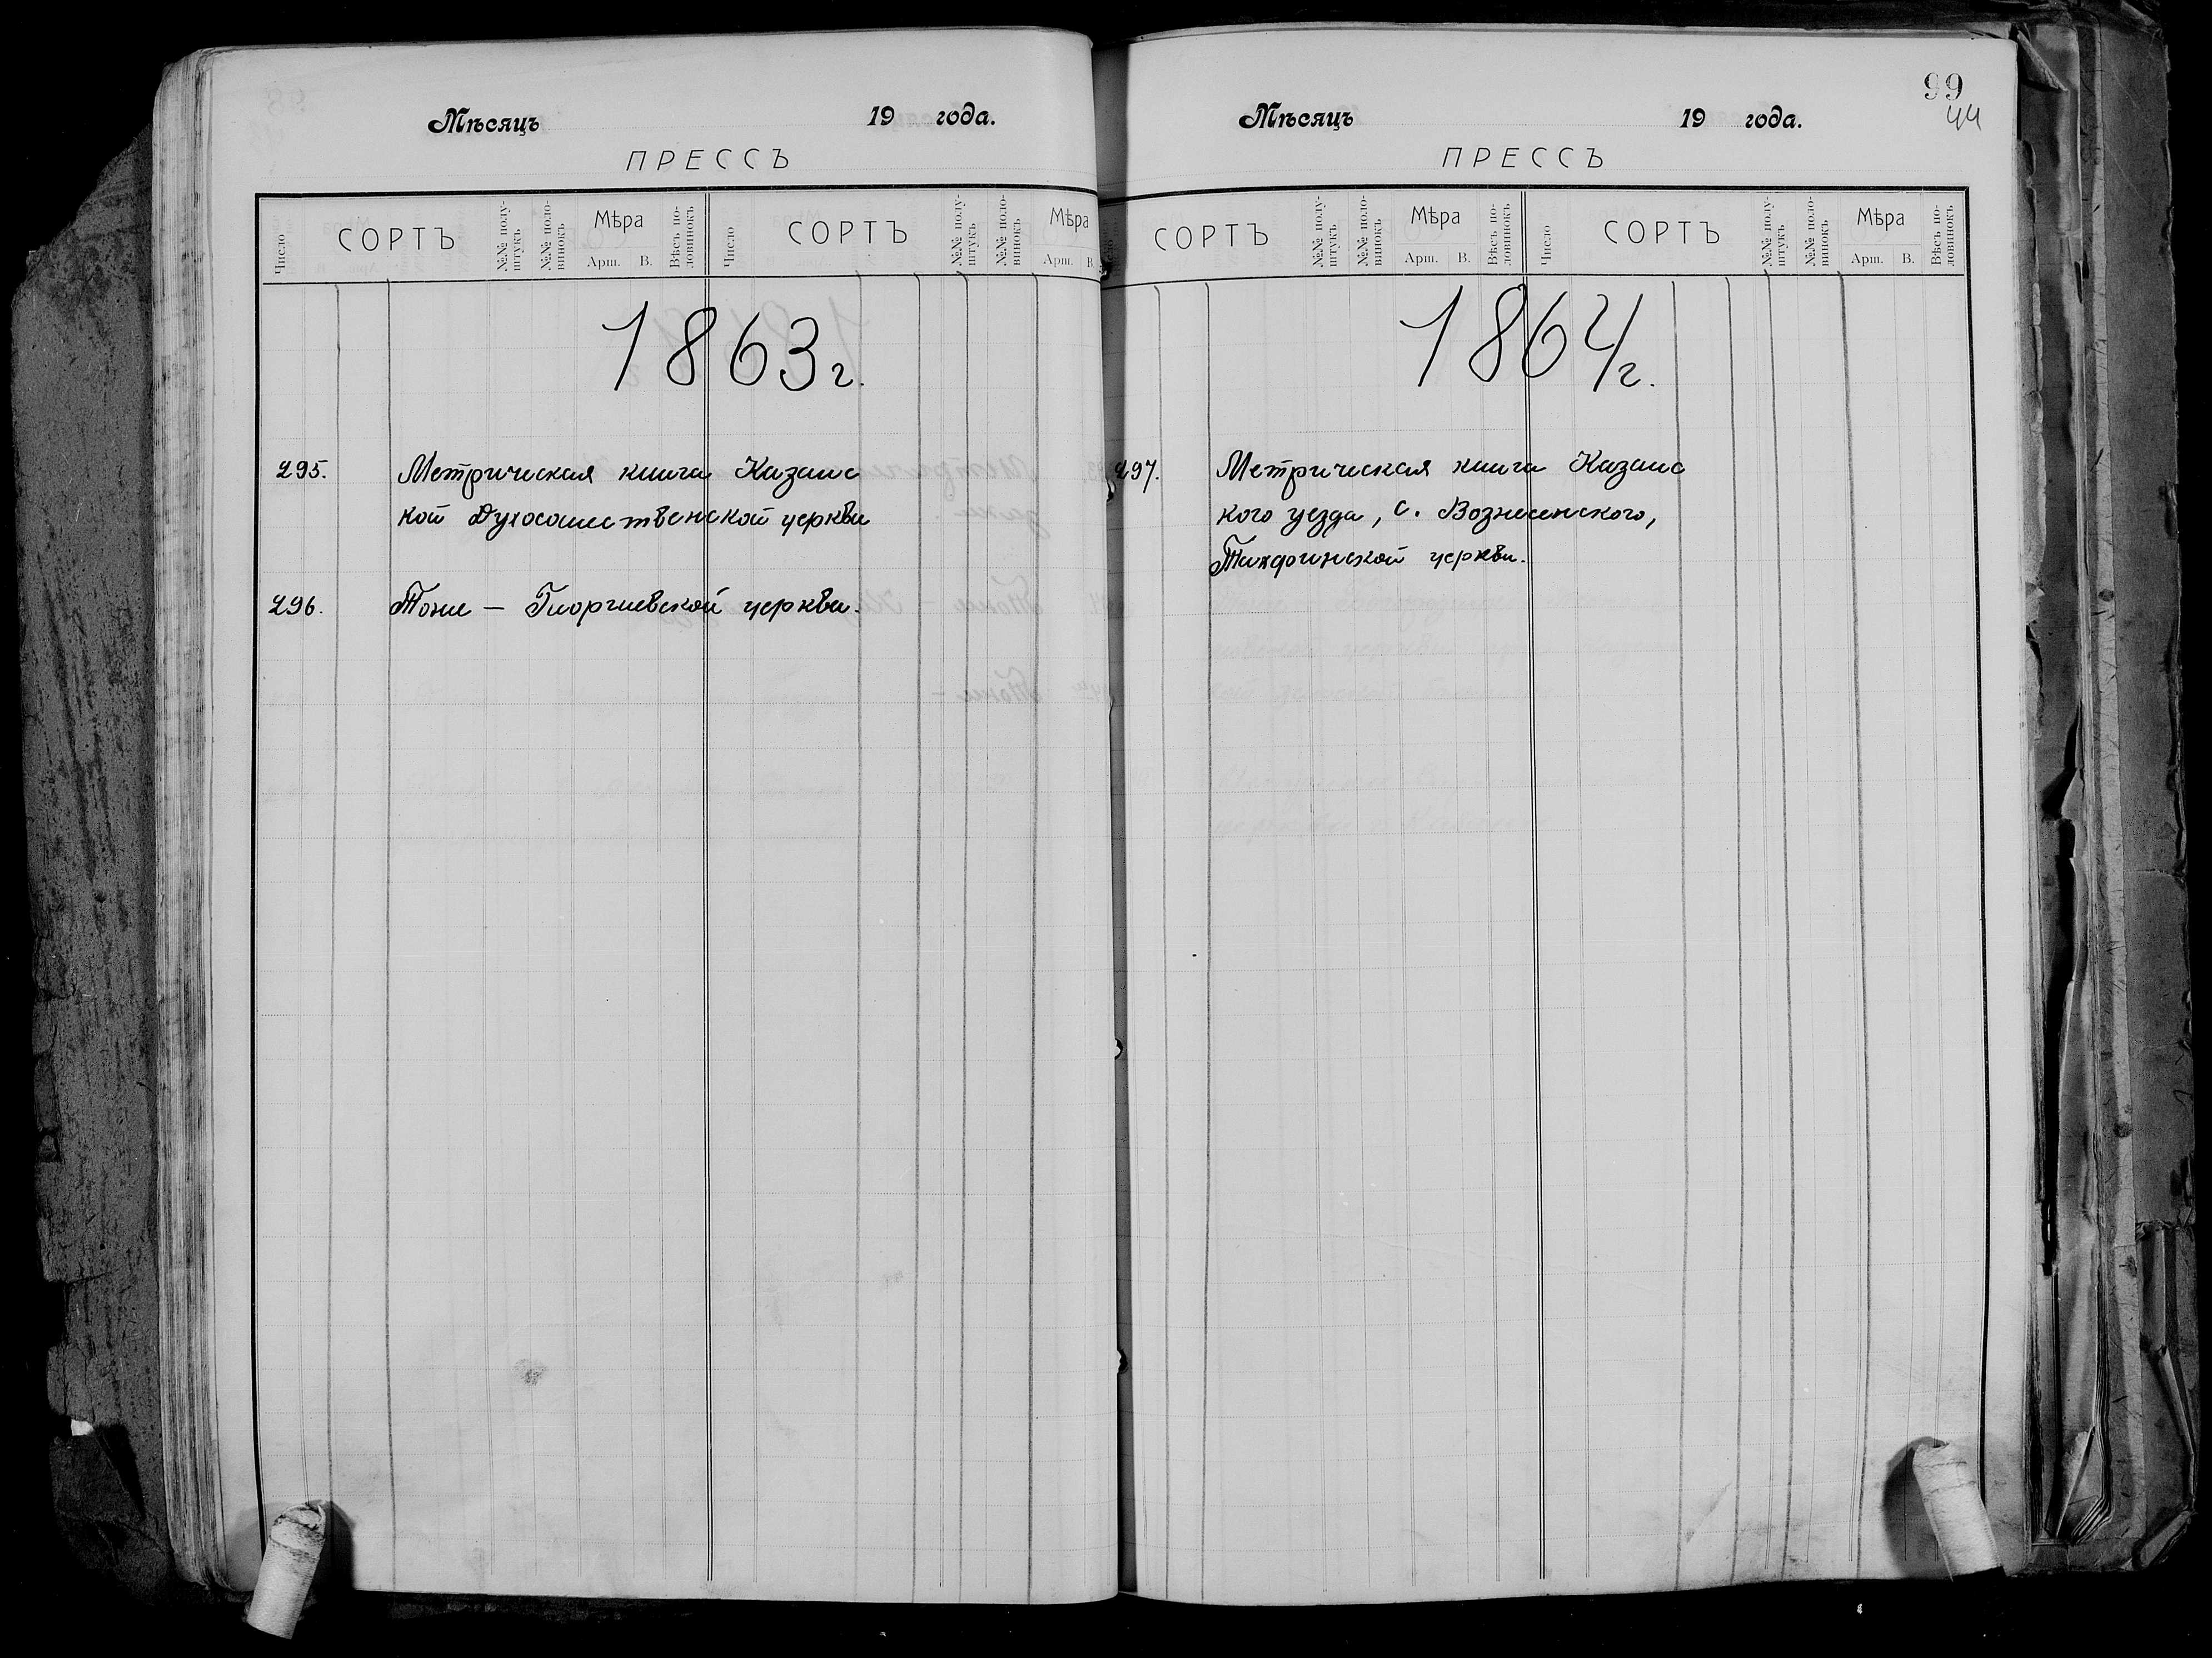 Мѣсяцъ 19 года.
ПРЕССЪ
Число СОРТЪ №№ полу-штукъ №№ поло-винокъ Мѣра Арш. В. Вѣсъ по-ловинокъ Число СОРТЪ №№ полу-штукъ №№ поло-винокъ Мѣра Арш. В.
1863 г.
295. Метрическая книга Казанс
кой Духосошественской церкви
296. Тоже — Георгиевской церкви.
99
44
Мѣсяцъ 19 года.
ПРЕССЪ
СОРТЪ №№ полу-штукъ №№ поло-винокъ Мѣра Арш. В. Вѣсъ по-ловинокъ Число СОРТЪ №№ полу-штукъ №№ поло-винокъ Мѣра Арш. В. Вѣсъ по-ловинокъ
1864 г.
297. Метрическая книга Казанс
кого уезда, с. Вознесенского,
церкви.